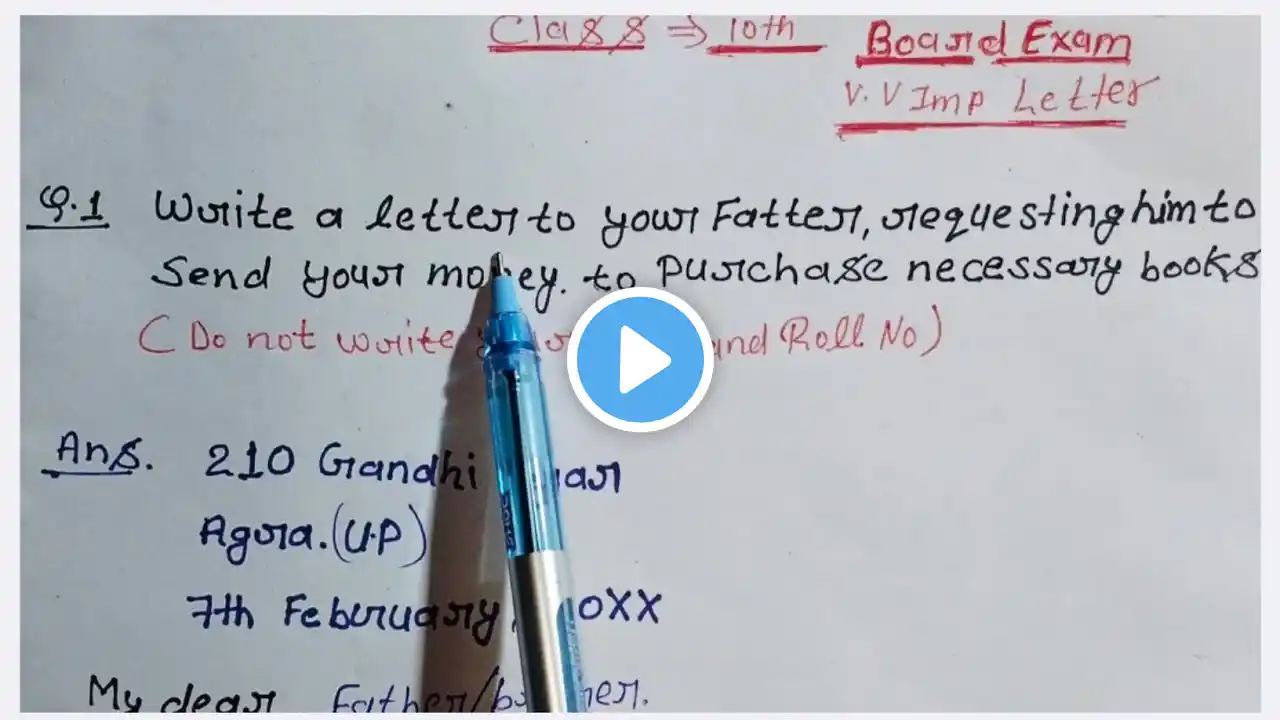 Class ⇒ 10th Board Exam
V.V Imp Letter
Q.1 Write a letter to your Fatter, requesting him to
Send your money. to purchase necessary books
(Do not write and Roll No)
Ans. 210 Gandhi
Agra.(U.P)
7th February
My dear Father/